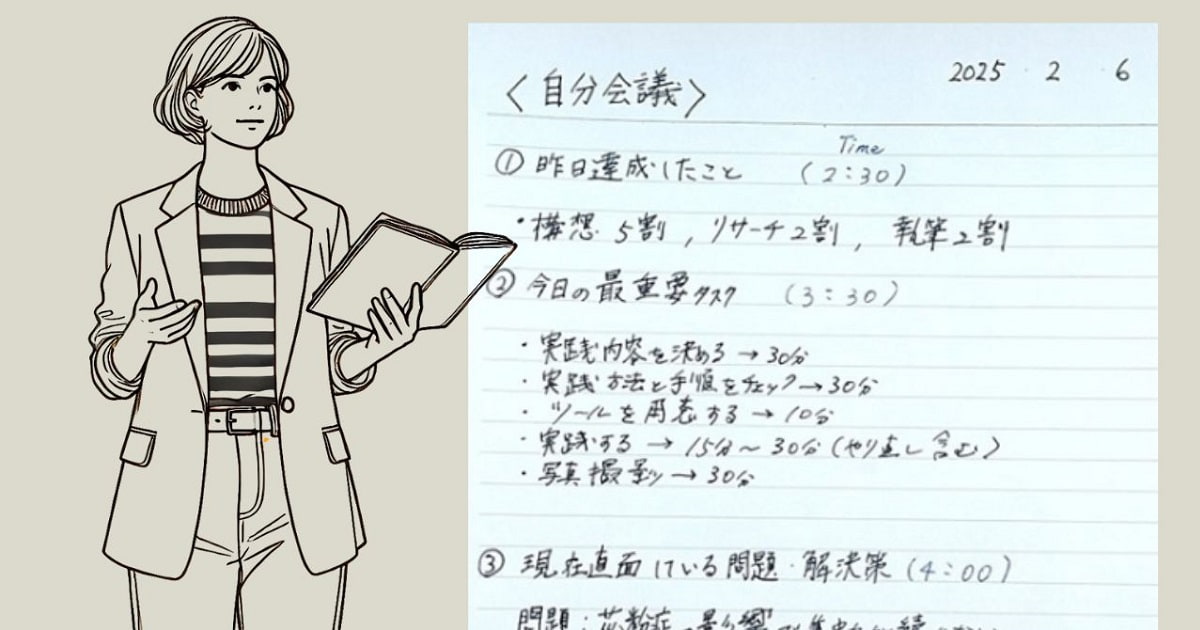 2025 2 6
〈自分会議〉
Time
① 昨日達成したこと (2:30)
・構想 5割, リサーチ2割, 執筆2割
② 今日の最重要タスク (3:30)
・実践内容を決める → 30分
・実践方法と手順をチェック → 30分
・ツールを用意する → 10分
・実践する → 15分~30分(やり直し含む)
・写真撮影 → 30分
③ 現在直面している問題・解決策 (4:00)
問題:花粉症の影響で集中力が続かない